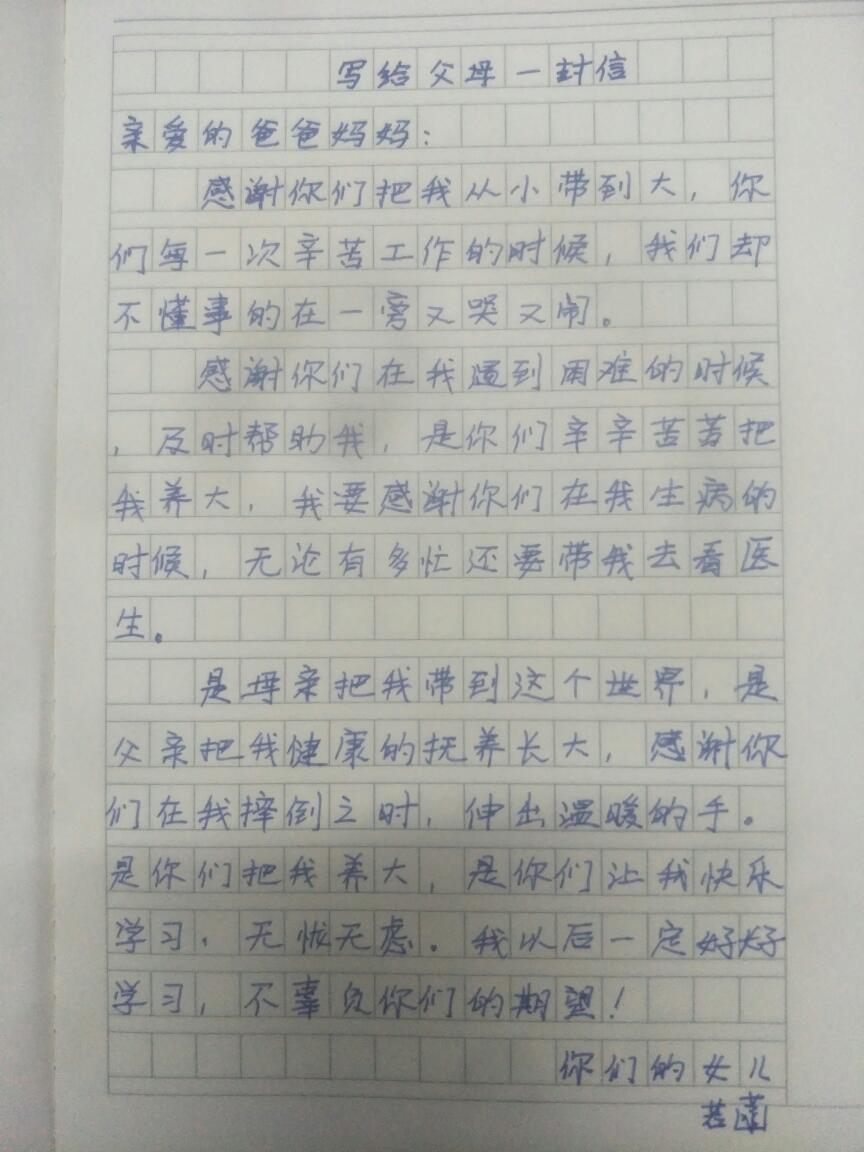 写给父母一封信
亲爱的爸爸妈妈：
感谢你们把我从小带到大，你
们每一次辛苦工作的时候，我们却
不懂事的在一旁又哭又闹。
感谢你们在我遇到困难的时候
，及时帮助我，是你们辛辛苦苦把
我养大，我要感谢你们在我生病的
时候，无论有多忙还要带我去看医
生。
是母亲把我带到这个世界，是
父亲把我健康的抚养长大，感谢你
们在我摔倒之时，伸出温暖的手。
是你们把我养大，是你们让我快乐
学习，无忧无虑。我以后一定好好
学习，不辜负你们的期望！
你们的女儿
若